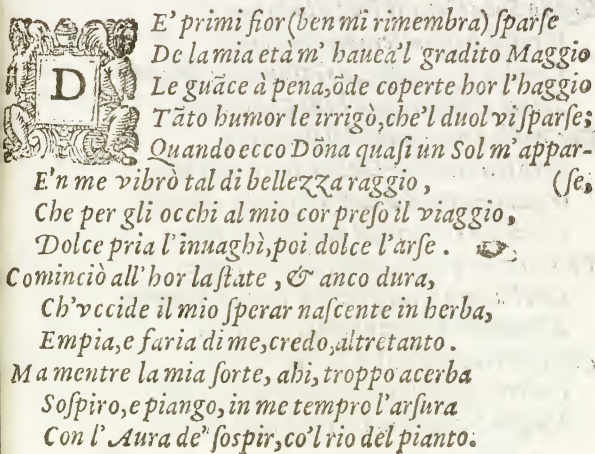 DE' primi fior (ben mi rimembra) ſparſe
De la mia età m' hauea'l gradito Maggio
Le guãce à pena, õde coperte hor l'haggio
Tãto humor le irrigò, che'l duol vi ſparſe;
Quando ecco Dõna quaſi un Sol m'appar-
E'n me vibrò tal di bellezza raggio, (ſe,
Che per gli occhi al mio cor preſo il viaggio,
Dolce pria l'inuaghì, poi dolce l'arſe.
Cominciò all'hor la ſtate, & anco dura,
Ch'vccide il mio ſperar naſcente in herba,
Empia, e faria di me, credo, altretanto.
Ma mentre la mia ſorte, ahi, troppo acerba
Soſpiro, e piango, in me tempro l'arſura
Con l'Aura de' ſoſpir, co'l rio del pianto.